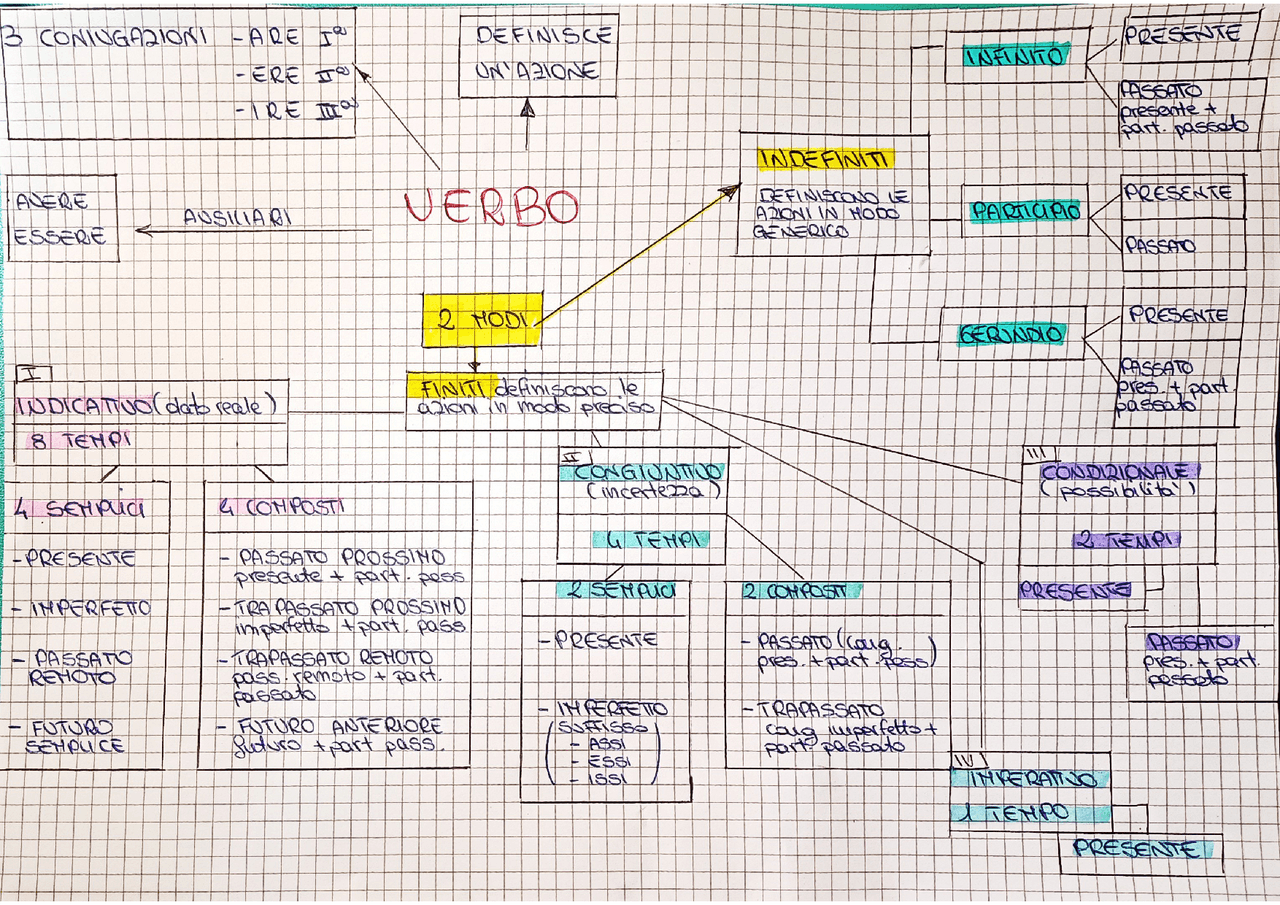 3 CONIUGAZIONI - ARE Iª
- ERE IIª
- IRE IIIª
DEFINISCE
UN'AZIONE
AVERE
ESSERE
AUSILIARI
VERBO
2 MODI
INDEFINITI
DEFINISCONO LE
AZIONI IN MODO
GENERICO
INFINITO
PRESENTE
PASSATO
presente +
part. passato
PARTICIPIO
PRESENTE
PASSATO
GERUNDIO
PRESENTE
PASSATO
pres. + part.
passato
FINITI definiscono le
azioni in modo preciso
I
INDICATIVO (dato reale)
8 TEMPI
4 SEMPLICI
- PRESENTE
- IMPERFETTO
- PASSATO
REMOTO
- FUTURO
SEMPLICE
4 COMPOSTI
- PASSATO PROSSIMO
presente + part. pass
- TRAPASSATO PROSSIMO
imperfetto + part. pass
- TRAPASSATO REMOTO
pass. remoto + part.
passato
- FUTURO ANTERIORE
futuro + part pass.
II
CONGIUNTIVO
(incertezza)
4 TEMPI
2 SEMPLICI
- PRESENTE
- IMPERFETTO
(SUFFISSO
- ASSI
- ESSI
- ISSI)
2 COMPOSTI
- PASSATO (cong.
pres. + part. pass)
- TRAPASSATO
cong imperfetto +
part. passato
III
CONDIZIONALE
(possibilità)
2 TEMPI
PRESENTE
PASSATO
pres. + part.
passato
IV
IMPERATIVO
1 TEMPO
PRESENTE